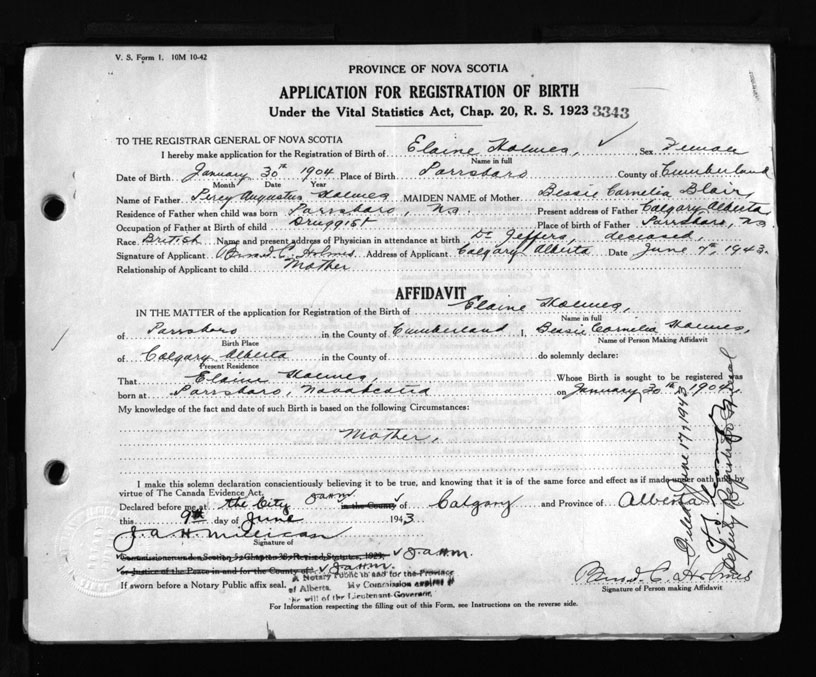 V. S. Form 1. 10M 10-42
PROVINCE OF NOVA SCOTIA
APPLICATION FOR REGISTRATION OF BIRTH
Under the Vital Statistics Act, Chap. 20, R. S. 1923 3343
TO THE REGISTRAR GENERAL OF NOVA SCOTIA
I hereby make application for the Registration of Birth of Elaine Holmes, Sex Female
Name in full
Date of Birth January 30th 1904 Place of Birth Parrsboro County of Cumberland
Month Date Year
Name of Father Percy Augustus Holmes MAIDEN NAME of Mother Bessie Cornelia Blair,
Residence of Father when child was born Parrsboro, N.S. Present address of Father Calgary Alberta
Occupation of Father at Birth of child Druggist Place of birth of Father Parrsboro, N.S.
Race British Name and present address of Physician in attendance at birth Dr Jeffers, deceased,
Signature of Applicant C. Holmes Address of Applicant Calgary Alberta Date June 7th, 1943.
Relationship of Applicant to child Mother
AFFIDAVIT
IN THE MATTER of the application for Registration of the Birth of Elaine Holmes,
Name in full
of Parrsboro in the County of Cumberland I, Bessie Cornelia Holmes,
Birth Place Name of Person Making Affidavit
of Calgary Alberta in the County of do solemnly declare:
Present Residence
That Elaine Holmes Whose Birth is sought to be registered was
born at Parrsboro, Nova Scotia on January 30th 1904.
My knowledge of the fact and date of such Birth is based on the following Circumstances:
Mother,
I make this solemn declaration conscientiously believing it to be true, and knowing that it is of the same force and effect as if made under oath and by
virtue of The Canada Evidence Act.
J.A.H.M.
Declared before me at the City in the County of Calgary and Province of Alberta
this 9th day of June 1943
J. A. H. Millican
Signature of
Commissioner under Section 5, Chapter 38, Revised Statutes, 1923, J.A.H.M.
or Justice of the Peace in and for the County of J.A.H.M.
If sworn before a Notary Public affix seal,
A Notary Public in and for the Province
of Alberta. My Commission expires at
the will of the Lieutenant-Governor.
C. Holmes
Signature of Person making Affidavit
For Information respecting the filling out of this Form, see Instructions on the reverse side.
Filed June 17, 1943
Deputy Registrar General